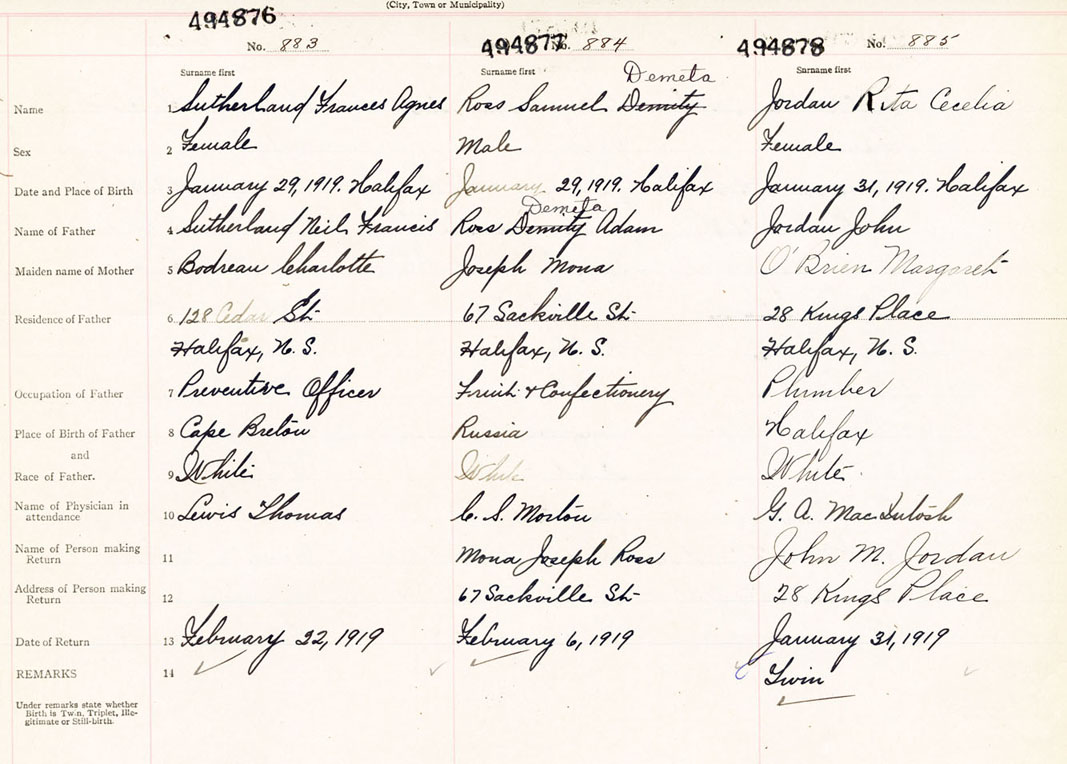 (City, Town or Municipality)
494876 494877 494878
No. 883 No. 884 No. 885
Surname first Surname first Surname first
Demeta
Name 1 Sutherland Frances Agnes Ross Samuel Demity Jordan Rita Cecelia
Sex 2 Female Male Female
Date and Place of Birth 3 January 29, 1919. Halifax January 29, 1919. Halifax January 31, 1919. Halifax
Demeta
Name of Father 4 Sutherland Neil Francis Ross Demity Adam Jordan John
Maiden name of Mother 5 Bodreau Charlotte Joseph Mona O'Brien Margaret
Residence of Father 6 128 Cedar St. 67 Sackville St. 28 Kings Place
Halifax, N. S. Halifax, N. S. Halifax, N. S.
Occupation of Father 7 Preventive Officer Fruit & Confectionery Plumber
Place of Birth of Father 8 Cape Breton Russia Halifax
and
Race of Father. 9 White White White
Name of Physician in attendance 10 Lewis Thomas C. S. Morton G. A. MacIntosh
Name of Person making Return 11 Mona Joseph Ross John M. Jordan
Address of Person making Return 12 67 Sackville St. 28 Kings Place
Date of Return 13 February 22, 1919 February 6, 1919 January 31, 1919
REMARKS 14 Twin
Under remarks state whether
Birth is Twin, Triplet, Ille-
gitimate or Still-birth.